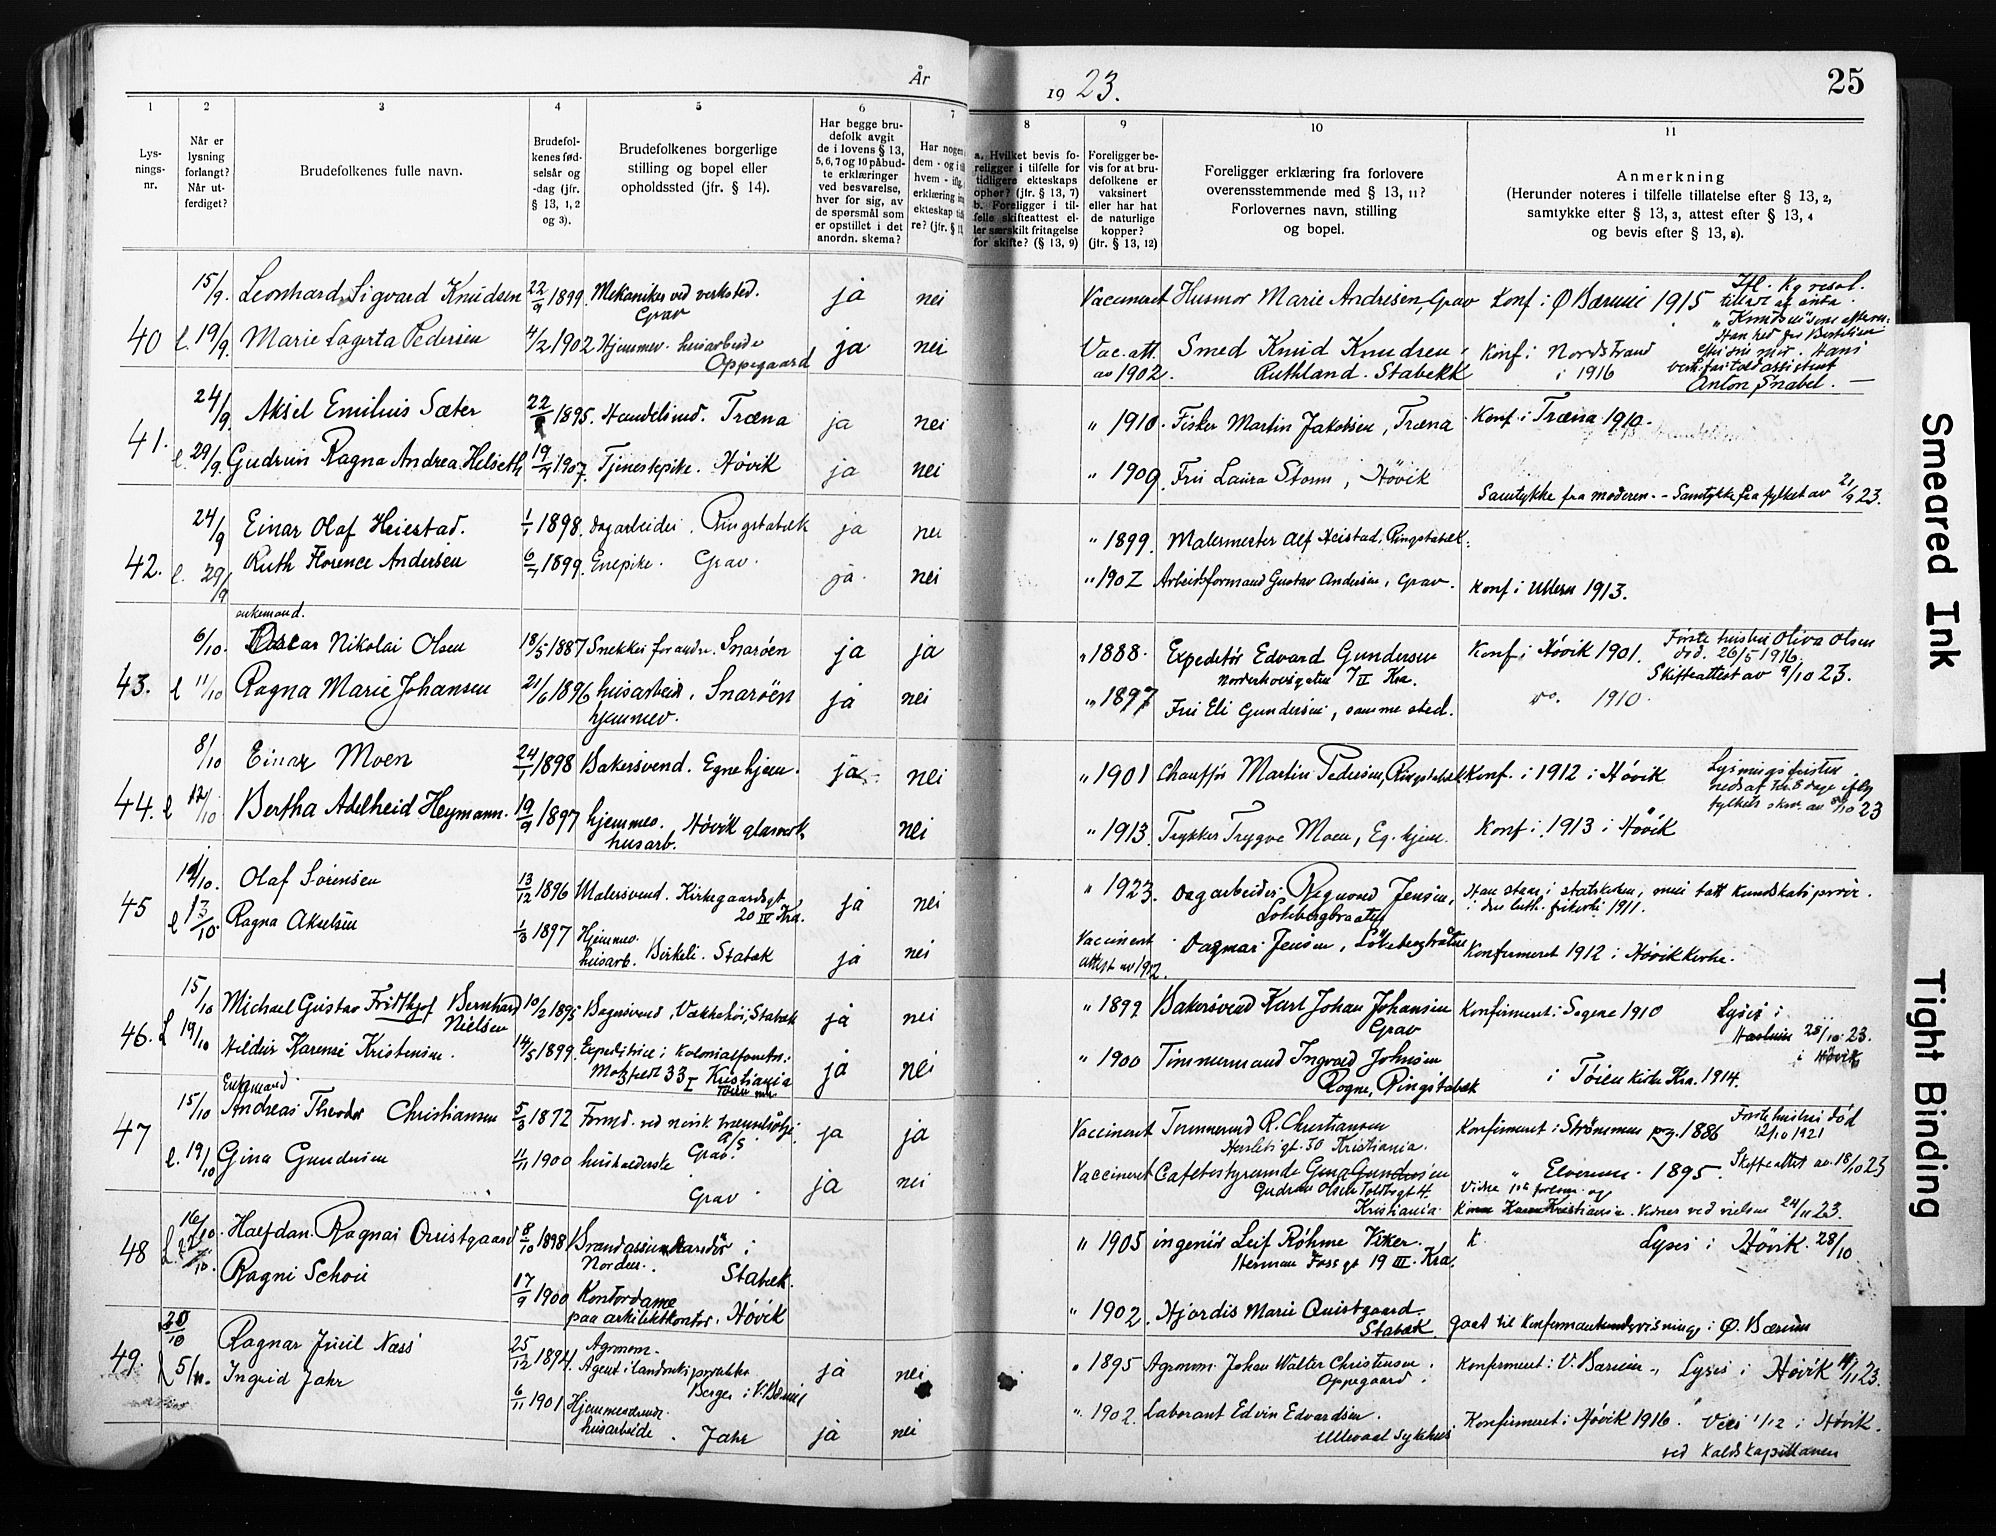 År 1923.
25
1 2 3 4 5 6 7 8 9 10 11
Lysnings-nr.
Når er lysning forlangt? Når utferdiget?
Brudefolkenes fulle navn.
Brudefolkenes fødselsår og -dag (jfr. § 13, 1, 2 og 3).
Brudefolkenes borgerlige stilling og bopel eller opholdssted (jfr. § 14).
Har begge brudefolk avgit de i lovens § 13, 5, 6, 7 og 10 påbudte erklæringer ved besvarelse, hver for sig, av de spørsmål som er opstillet i det anordn. skema?
Har nogen dem - og i hvem - ifig. erklæring ekteskap tidre? (jfr. § 1
a. Hvilket bevis foreligger i tilfelle for tidligere ekteskaps ophør? (jfr. § 13, 7) b. Foreligger i tilfelle skifteattest eller særskilt fritagelse for skifte? (§ 13, 9)
Foreligger bevis for at brudefolkene er vaksinert eller har hat de naturlige kopper? (jfr. § 13, 12)
Foreligger erklæring fra forlovere overensstemmende med § 13, 11? Forlovernes navn, stilling og bopel.
Anmerkning (Herunder noteres i tilfelle tillatelse efter § 13, 2, samtykke efter § 13, 3, attest efter § 13, 4 og bevis efter § 13, 8).
15/9. Leonhard Sigvard Knudsen 22/9 1899. Mekaniker ved verksted. Grav ja nei Vaccineret Husmor Marie Andresen, Grav Konf. i Ø Bærum 1915
40 l. 19/9. Marie Lagerta Pedersen 4/2 1902 Hjemmev. husarbeide Oppegaard ja nei Vac. att. av 1902. Smed Knud Knudsen, Ruthland. Stabekk Konf. i Nordstrand i 1916
Anton Snabel.
24/9. Aksel Emilius Sæter 22/ 1895. Handelsmd. Træna ja nei " 1910. Fisker Martin Jakobsen, Træna Konf. i Træna 1910.
41. l. 29/9. Gudrun Ragna Andrea Helseth 19/ 1907. Tjenestepike. Høvik ja nei " 1909. Fru Laura Storm, Høvik Samtykke fra moderen. - Samtykke fra fylket av 21/9 23.
24/9 Einar Olaf Heiestad. 1/1 1898. Dagarbeider. Ringstabæk ja nei " 1899. Malermester Alf Heistad, Ringstabæk.
42. l. 29/9 Ruth Florence Andersen 6/ 1899. Enepike. Grav. ja. nei " 1902 Arbeidsformand Gustav Andersen, Grav. Konf. i Ullern 1913.
enkemand.
6/10. Oscar Nikolai Olsen 18/5 1887 Snekker for andre. Snarøen ja ja " 1888. Expeditør Edvard Gundersen Norderhovsgaten 7 II Kra. Konf. i Høvik 1901. Første hustru Oliva Olsen
død. 26/5 1916
Skifteattest av 9/10 23.
43. l 11/10 Ragna Marie Johansen 21/6 1896 husarbeid. Snarøen hjemmev. ja nei " 1897 Fru Eli Gundersen, samme sted. do. 1910.
8/10 Einar Moen 24/1 1898 Bakersvend. Egne hjem. ja nei " 1901 Chauffør Martin Pedersen, Ringstabæk Konf. i 1912 i Høvik
Lysningsfristen
fylkets skr. av 8/10 23
44. l 12/10 Bertha Adelheid Heymann. 19/9 1897 hjemmev. Høvik glasverk, husarb. nei " 1913. Trykker Trygve Moen, Eg. hjem. Konf. i 1913 i Høvik
10/10. Olaf Sørensen 13/12 1896 Malersvend. Kirkegaardsgt. 20 IV Kra. ja nei " 1923. Dagarbeider Ragnvald Jensen, Løkebergbraaten Han staar i statskirken, men tatt kundskapsprøve i den luth. frikirke 1911.
45 l 13/10. Ragna Akselsen 1/3 1897 Hjemmev. husarb. Birkeli. Stabæk ja nei Vaccinert attest av 1912. Dagmar Jensen, Løkebergbråten Konfirmeret 1912 i Høvik kirke.
15/10 Michael Gustav Fridthjof Bernhard Nielsen 10/2 1895 Bagersvend, Vækkehøi, Stabæk ja nei " 1899 Bakersvend Karl Johan Johansen Grav Konfirmeret i Sagene 1910 Lyses i
Haslum 28/10 23.
i Høvik
46. L 19/10 Hildur Karense Kristensen. 14/5 1899. Expeditrice i Kolonialforretn. Motzfeldt 33 I Kristiania ja nei " 1900 Tømmermand Ingvald Johnsen Rogne, Ringstabæk i Tøien kirke Kra. 1914.
Enkemand
15/10 Andreas Theodor Christiansen 5/3 1872 Formd. ved norsk A/S Grav. ja ja Vaccineret Tømmermd R. Christiansen Herslebsgt. 30 Kristiania. Konfirmeret i Strømmen pg. 1886 Første hustru død
12/10 1921
Skifteattest av 18/10 23
47 l. 19/10 Gina Gundersen 11/11 1900 husholderske Grav ja nei Vaccineret Cafebestyrerinde Gina Gundersen Gudrun Olsen Toldbgt 4. Kristiania. " Elverum. 1895.
24/11 23.
48 16/10. L. 22/10. Halfdan Ragnar Quistgaard 8/10 1898 Brandassurandør i Norden. Stabæk. " 1905 ingeniør Leif Röhme Viker. Herman Foss gt 19 III. Kra. K. Lyses i Høvik. 28/10
Ragni Schou 17/9 1900 Kontordame paa arkitektkontor. Høvik " 1902. Hjørdis Marie Quistgaard. Stabæk gaat til konfirmantundervisning i Ø. Bærum
49. 20/10 Ragnar Juul Næss 25/12 1894. Agronom. Agent i Berger i V. Bærum ja nei " 1895 Agronom Johan Walter Christensen. Oppegaard. Konfirmeret i V. Bærum. Lyses i Høvik 11/11 23.
l 5/11. Ingrid Jahr 6/11 1901 Hjemmeværende husarbeide. Jahr ja nei " 1902 Laborant Edvin Edvardsen. Ullevaal sykehus Konfirmeret i Høvik 1916. Viet 1/12 i Høvik.
ved Kaldskapellanen
Smeared Ink
Tight Binding